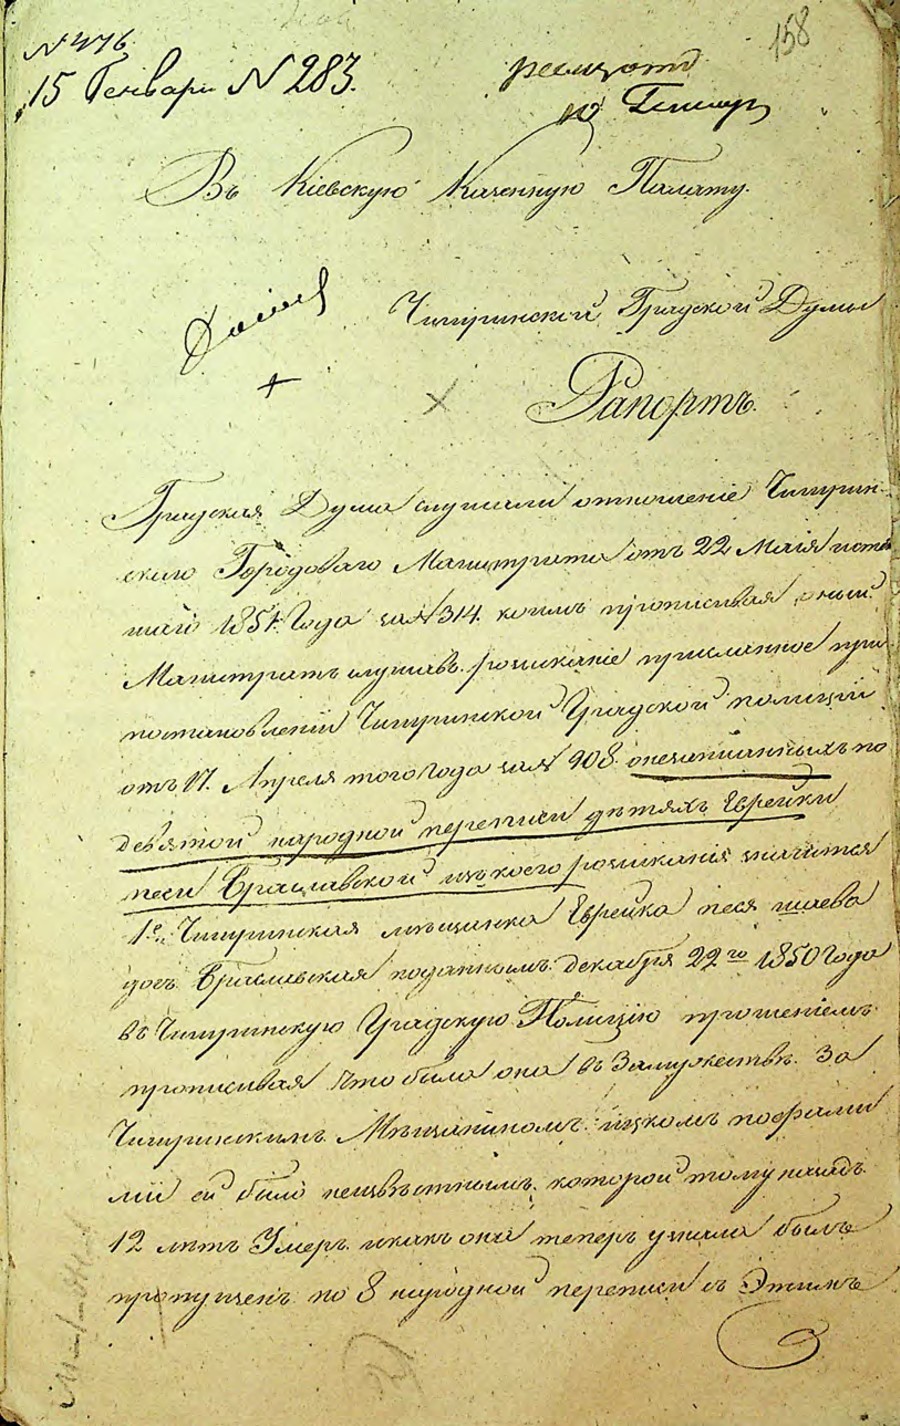 158
15 Генваря N 283.
Въ Кіевскую Казенную Палату.
Чигиринской Градской Думы
Рапортъ.
Градская Дума слушали отношеніе Чигирин-
скаго Городоваго Магистрата отъ 22 Маія
1851 Года за N 314. коимъ прописывая оный
Магистратъ слушавъ розысканіе присланное при
постановленіи Чигиринской Градской полиціи
отъ 17. Апреля того Года за N 908. по
девятой народной переписи детяхъ Еврейки
песи Браславской изъ коего розысканія значится
1е. Чигиринская мещанка Еврейка песя шаева
дочь Браславская поданнымъ декабря 22го 1850 Года
въ Чигиринскую Градскую Полицію прошеніемъ
прописывая что была она въ Замужестве за
Чигиринскимъ Мещаниномъ ицкомъ пофами
ліи ей было неизвестнымъ, которой тому назадъ
12 летъ Умеръ и какъ она теперь узнала былъ
пропущенъ по 8 народной переписи съ Этимъ